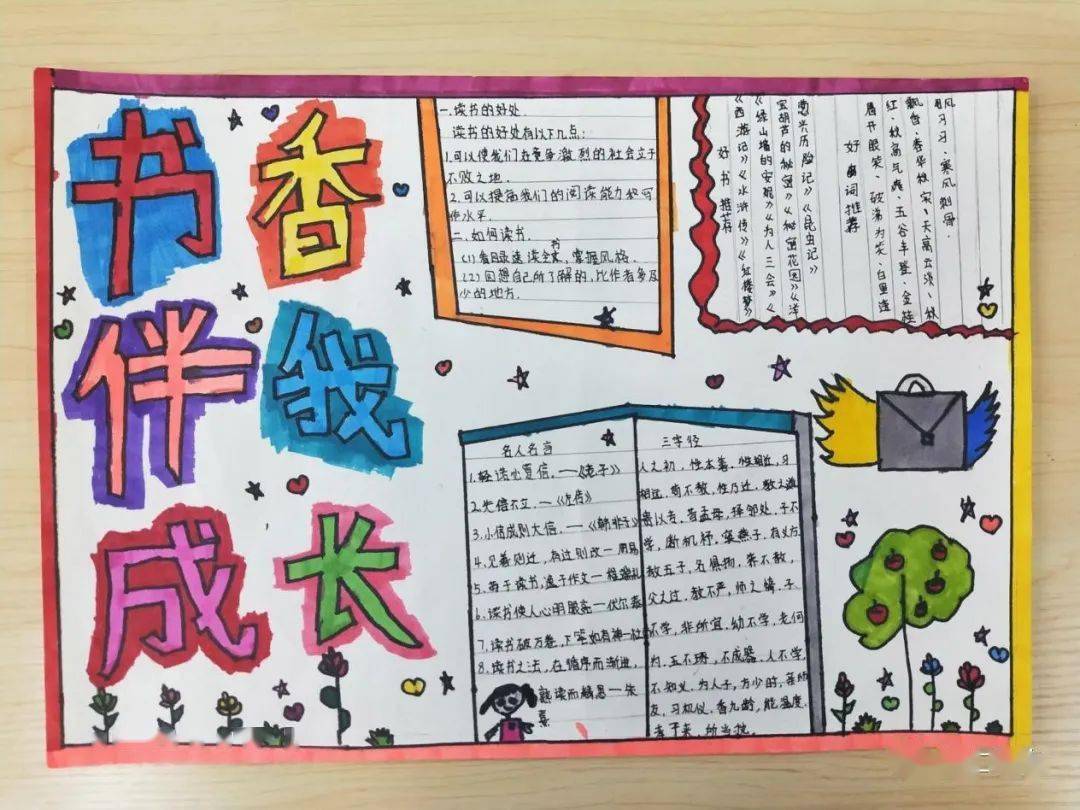 书香
伴我
成长
一.读书的好处
读书的好处有以下几点:
1.可以使我们在竞争激烈的社会立于
不败之地.
2.可以提高我们的阅读能力和写
作水平.
二.如何读书.
(1)看目录速读全书,掌握风格.
(2)回想自己所了解的,比作者多及
少的地方.
好书推荐
《西游记》《水浒传》《红楼梦》
《绿山墙的安妮》《为人三会》《
宝葫芦的秘密》《秘密花园》《洋
葱头历险记》《昆虫记》
好词推荐
眉开眼笑、破涕为笑、白里透
红、秋高气爽、五谷丰登、金桂
飘香、春华秋实、天高云淡、秋
风习习、寒风刺骨.
名人名言
1.轻诺必寡信.——《老子》
2.无信不立.—《论语》
3.小信成则大信.——《韩非子》
4.见善则迁,有过则改—周易
6.读书使人心明眼亮—伏尔泰
7.读书破万卷,下笔如有神—杜甫
8.读书之法,在循序而渐进,
熟读而精思—朱
熹
三字经
人之初,性本善,性相近,习
相远,苟不教,性乃迁,教之道
贵以专,昔孟母,择邻处,子不
学,断机杼,窦燕子,有义方
教五子,名俱扬,养不教,
父之过,教不严,师之惰,子
不学,非所宜,幼不学,老何
为,玉不琢,不成器,人不学
不知义,为人子,方少时,亲师
友,习礼仪,香九龄,能温席,
孝于亲,所当执.